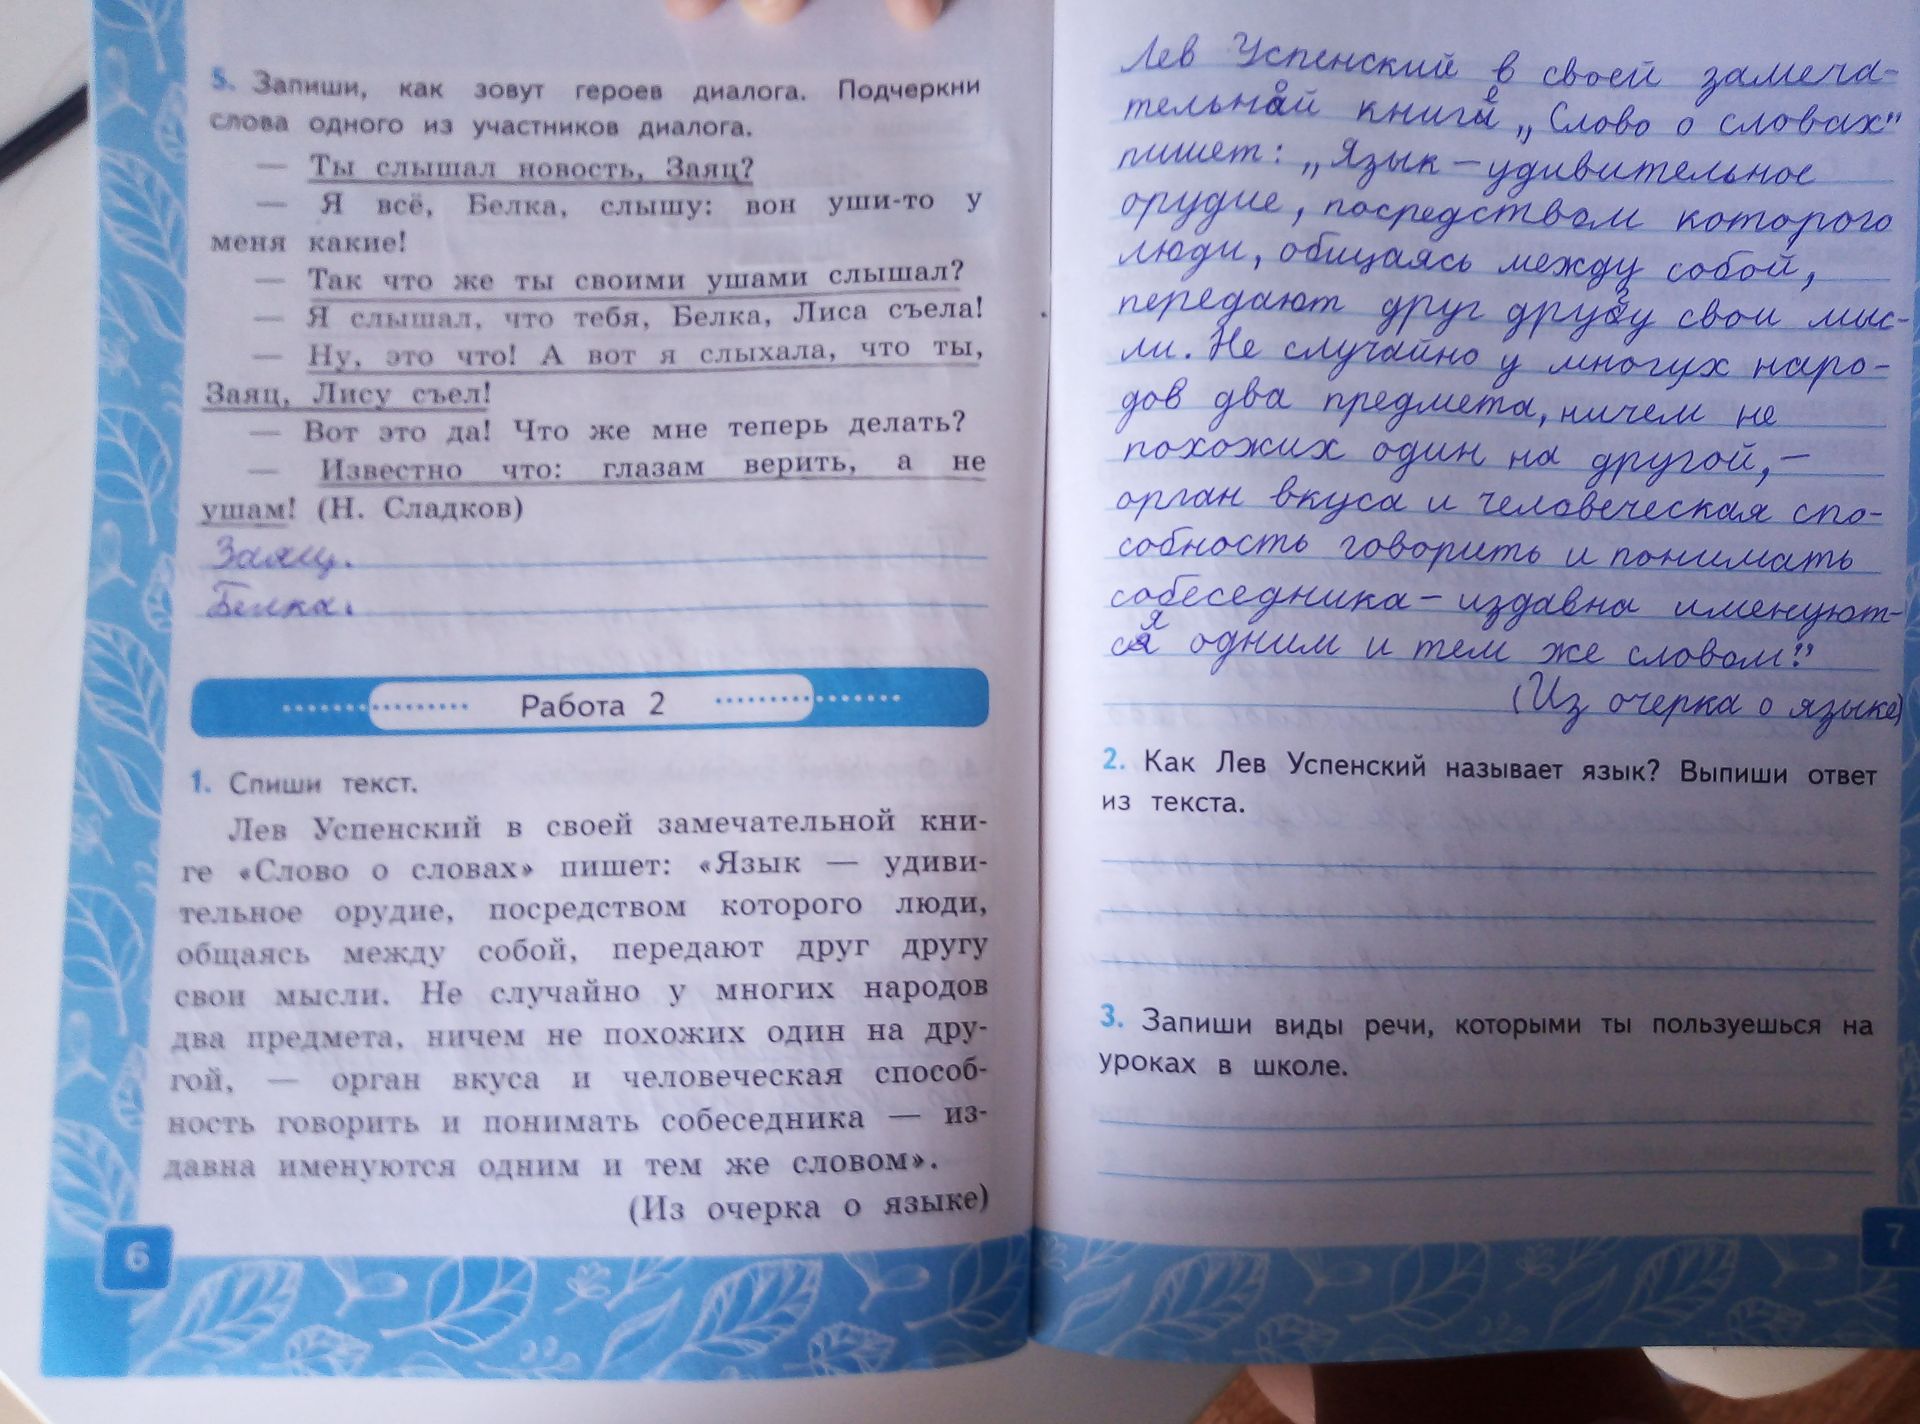 5. Запиши, как зовут героев диалога. Подчеркни
слова одного из участников диалога.
— Ты слышал новость, Заяц?
— Я всё, Белка, слышу: вон уши-то у
меня какие!
— Так что же ты своими ушами слышал?
— Я слышал, что тебя, Белка, Лиса съела!
— Ну, это что! А вот я слыхала, что ты,
Заяц, Лису съел!
— Вот это да! Что же мне теперь делать?
— Известно что: глазам верить, а не
ушам! (Н. Сладков)
Заяц.
Белка.
Работа 2
1. Спиши текст.
Лев Успенский в своей замечательной кни-
ге «Слово о словах» пишет: «Язык — удиви-
тельное орудие, посредством которого люди,
общаясь между собой, передают друг другу
свои мысли. Не случайно у многих народов
два предмета, ничем не похожих один на дру-
гой, — орган вкуса и человеческая способ-
ность говорить и понимать собеседника — из-
давна именуются одним и тем же словом».
(Из очерка о языке)
6
Лев Успенский в своей замеча-
тельной книге „Слово о словах"
пишет: „Язык — удивительное
орудие, посредством которого
люди, общаясь между собой,
передают друг другу свои мыс-
ли. Не случайно у многих наро-
дов два предмета, ничем не
похожих один на другой, —
орган вкуса и человеческая спо-
собность говорить и понимать
собеседника — издавна именуют-
ся одним и тем же словом".
(Из очерка о языке)
2. Как Лев Успенский называет язык? Выпиши ответ
из текста.
3. Запиши виды речи, которыми ты пользуешься на
уроках в школе.
7